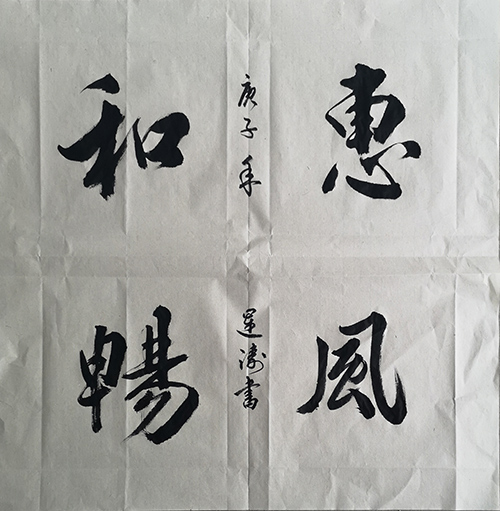 惠風
和暢
庚子年
涛書